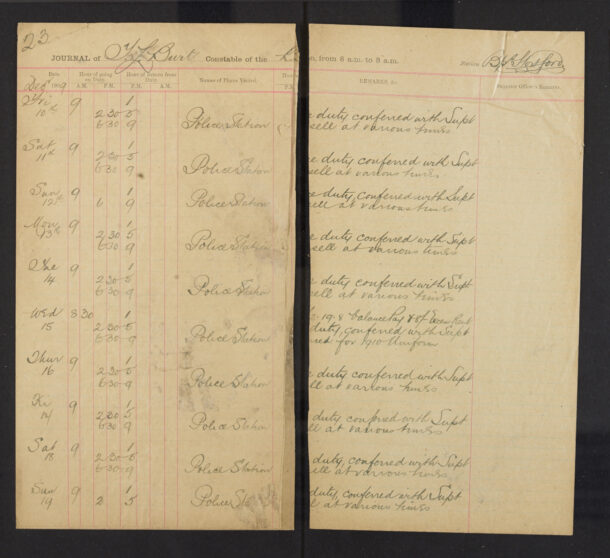 23
JOURNAL of Burt Constable of the
from 6 a.m. to 8 a.m.
Station
Date Hour of going on Duty. Hour of Return from Duty. Names of Places Visited. REMARKS, &c. Superior Officer's Remarks.
Dec 1909 A.M. P.M. P.M. A.M. P.M.
Fri 9 1
10th 2 30 5 Police Station duty conferred with Supt
6 30 9 sell at various times
Sat 9 1
11th 2 30 5 Police Station duty conferred with Supt
6 30 9 sell at various times
Sun 9 1
12th 6 9 Police Station duty, conferred with Supt
sell at various times
Mon 9 1
13th 2 30 5 Police Station duty conferred with Supt
6 30 9 sell at various times
Tue 9 1
14 2 30 5 Police Station duty conferred with Supt
6 30 9 ell at various times
Wed 8 30 1 -19.8 balance Pay
15 2 30 5 Police Station duty, conferred with Supt
6 30 9 for 1910 Uniform
Thur 9 1
16 2 30 5 Police Station duty conferred with Supt
6 30 9 ell at various times
9 1
2 30 5 Police Station duty conferred with Supt
6 30 9 ell at various times
Sat 9 1
18 2 30 5 Police Station duty, conferred with Supt
6 30 9 ell at various times
Sun 9 1
19 2 5 Police Sta duty, conferred with Supt
l at various times